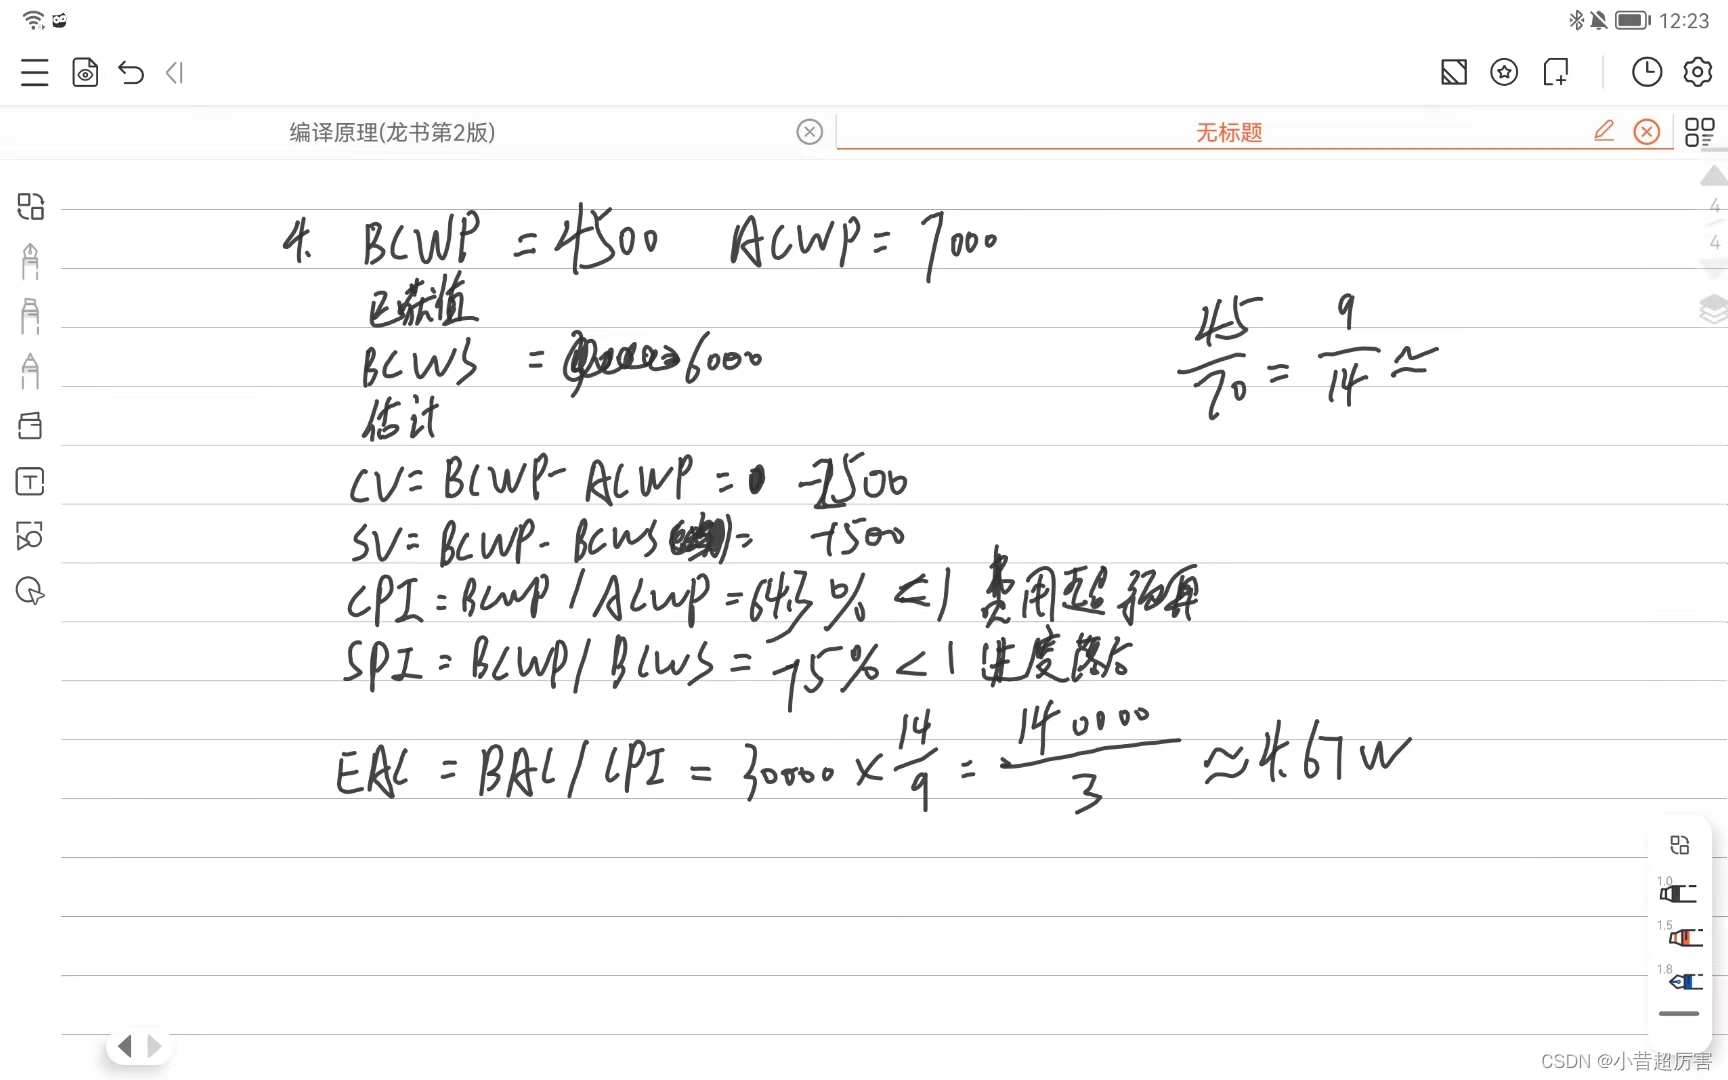 12:23
编译原理(龙书第2版)
无标题
4
4
4. BCWP = 4500 ACWP = 7000
已获值
BCWS = 6000
估计
45/70 = 9/14 ≈
CV = BCWP - ACWP = -2500
SV = BCWP - BCWS = -1500
CPI = BCWP / ACWP = 64.3% < 1 费用超预算
SPI = BCWP / BCWS = 75% < 1 进度落后
EAC = BAC / CPI = 30000 × 14/9 = 140000/3 ≈ 4.67W
1.0
1.5
1.8
CSDN @小昔超厉害